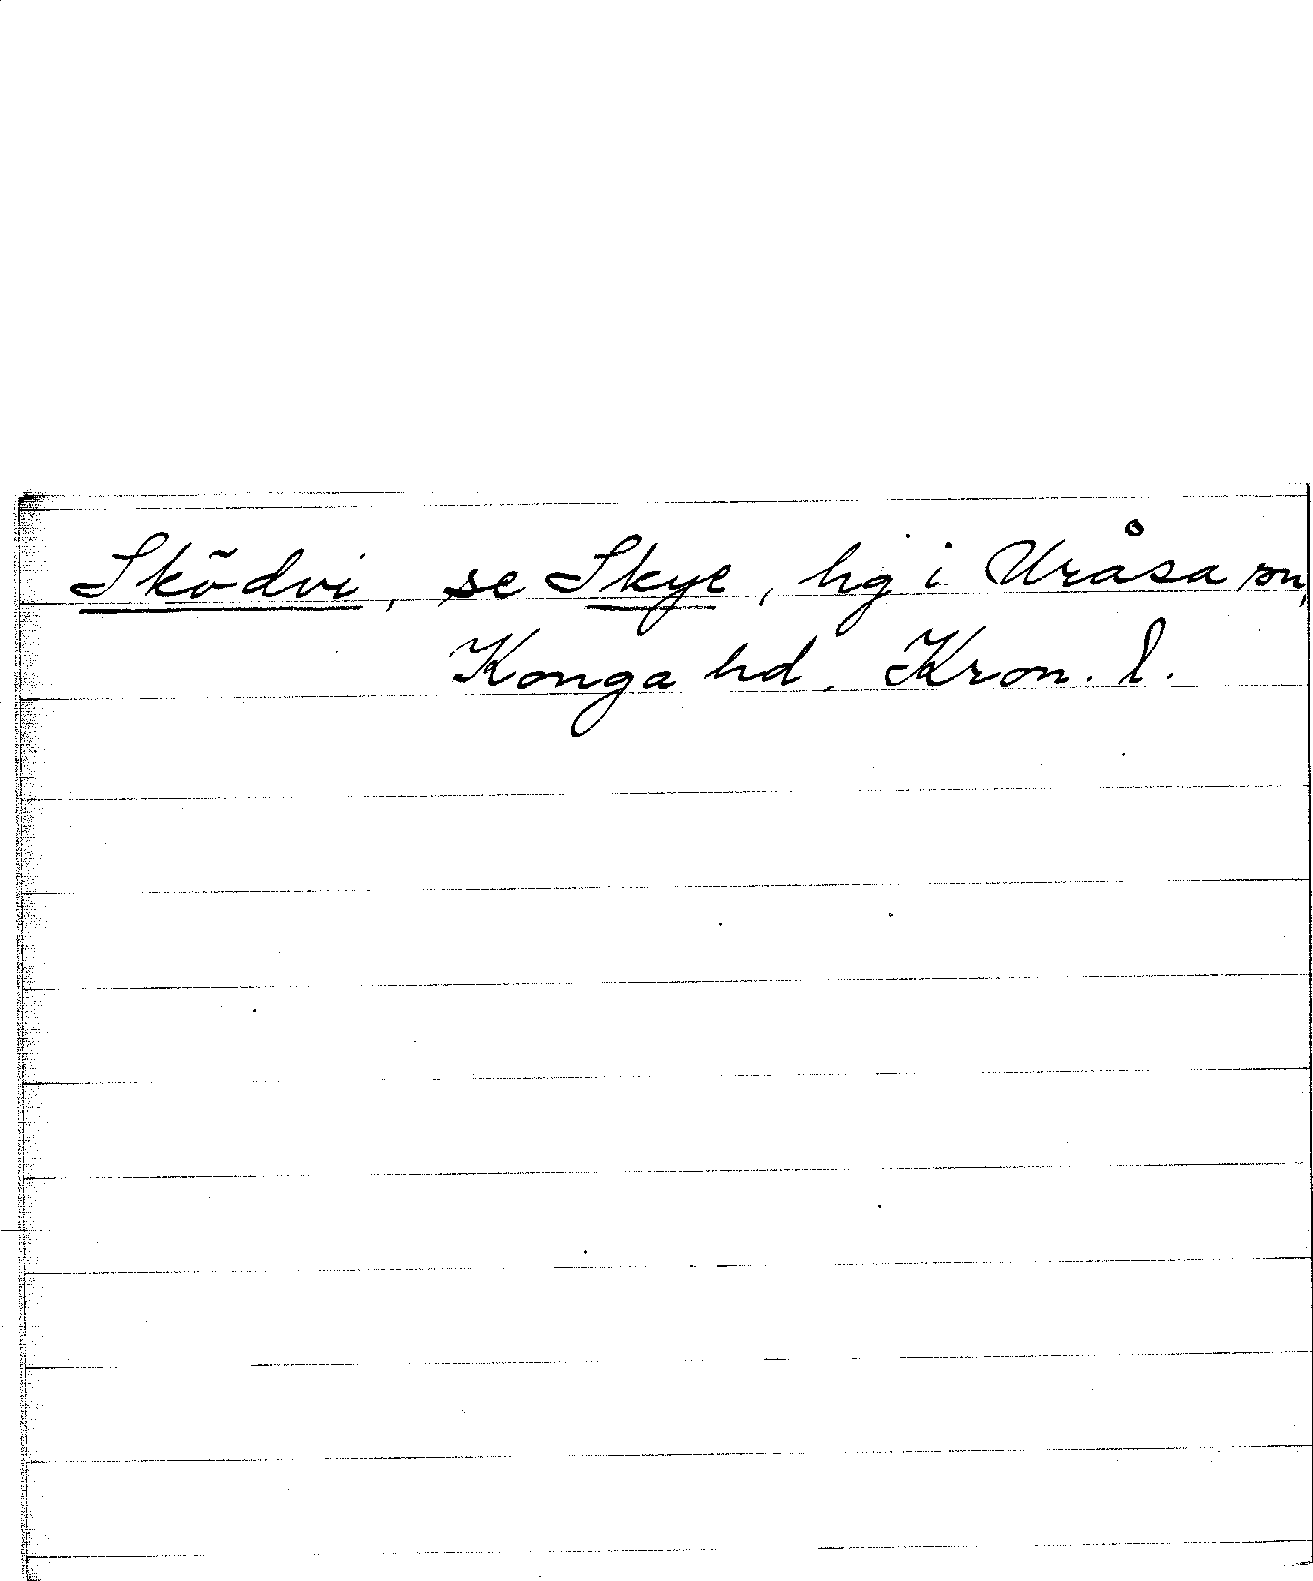 Sködvi, se Skye, hg i Uråsa sn,
Konga hd, Kron. l.